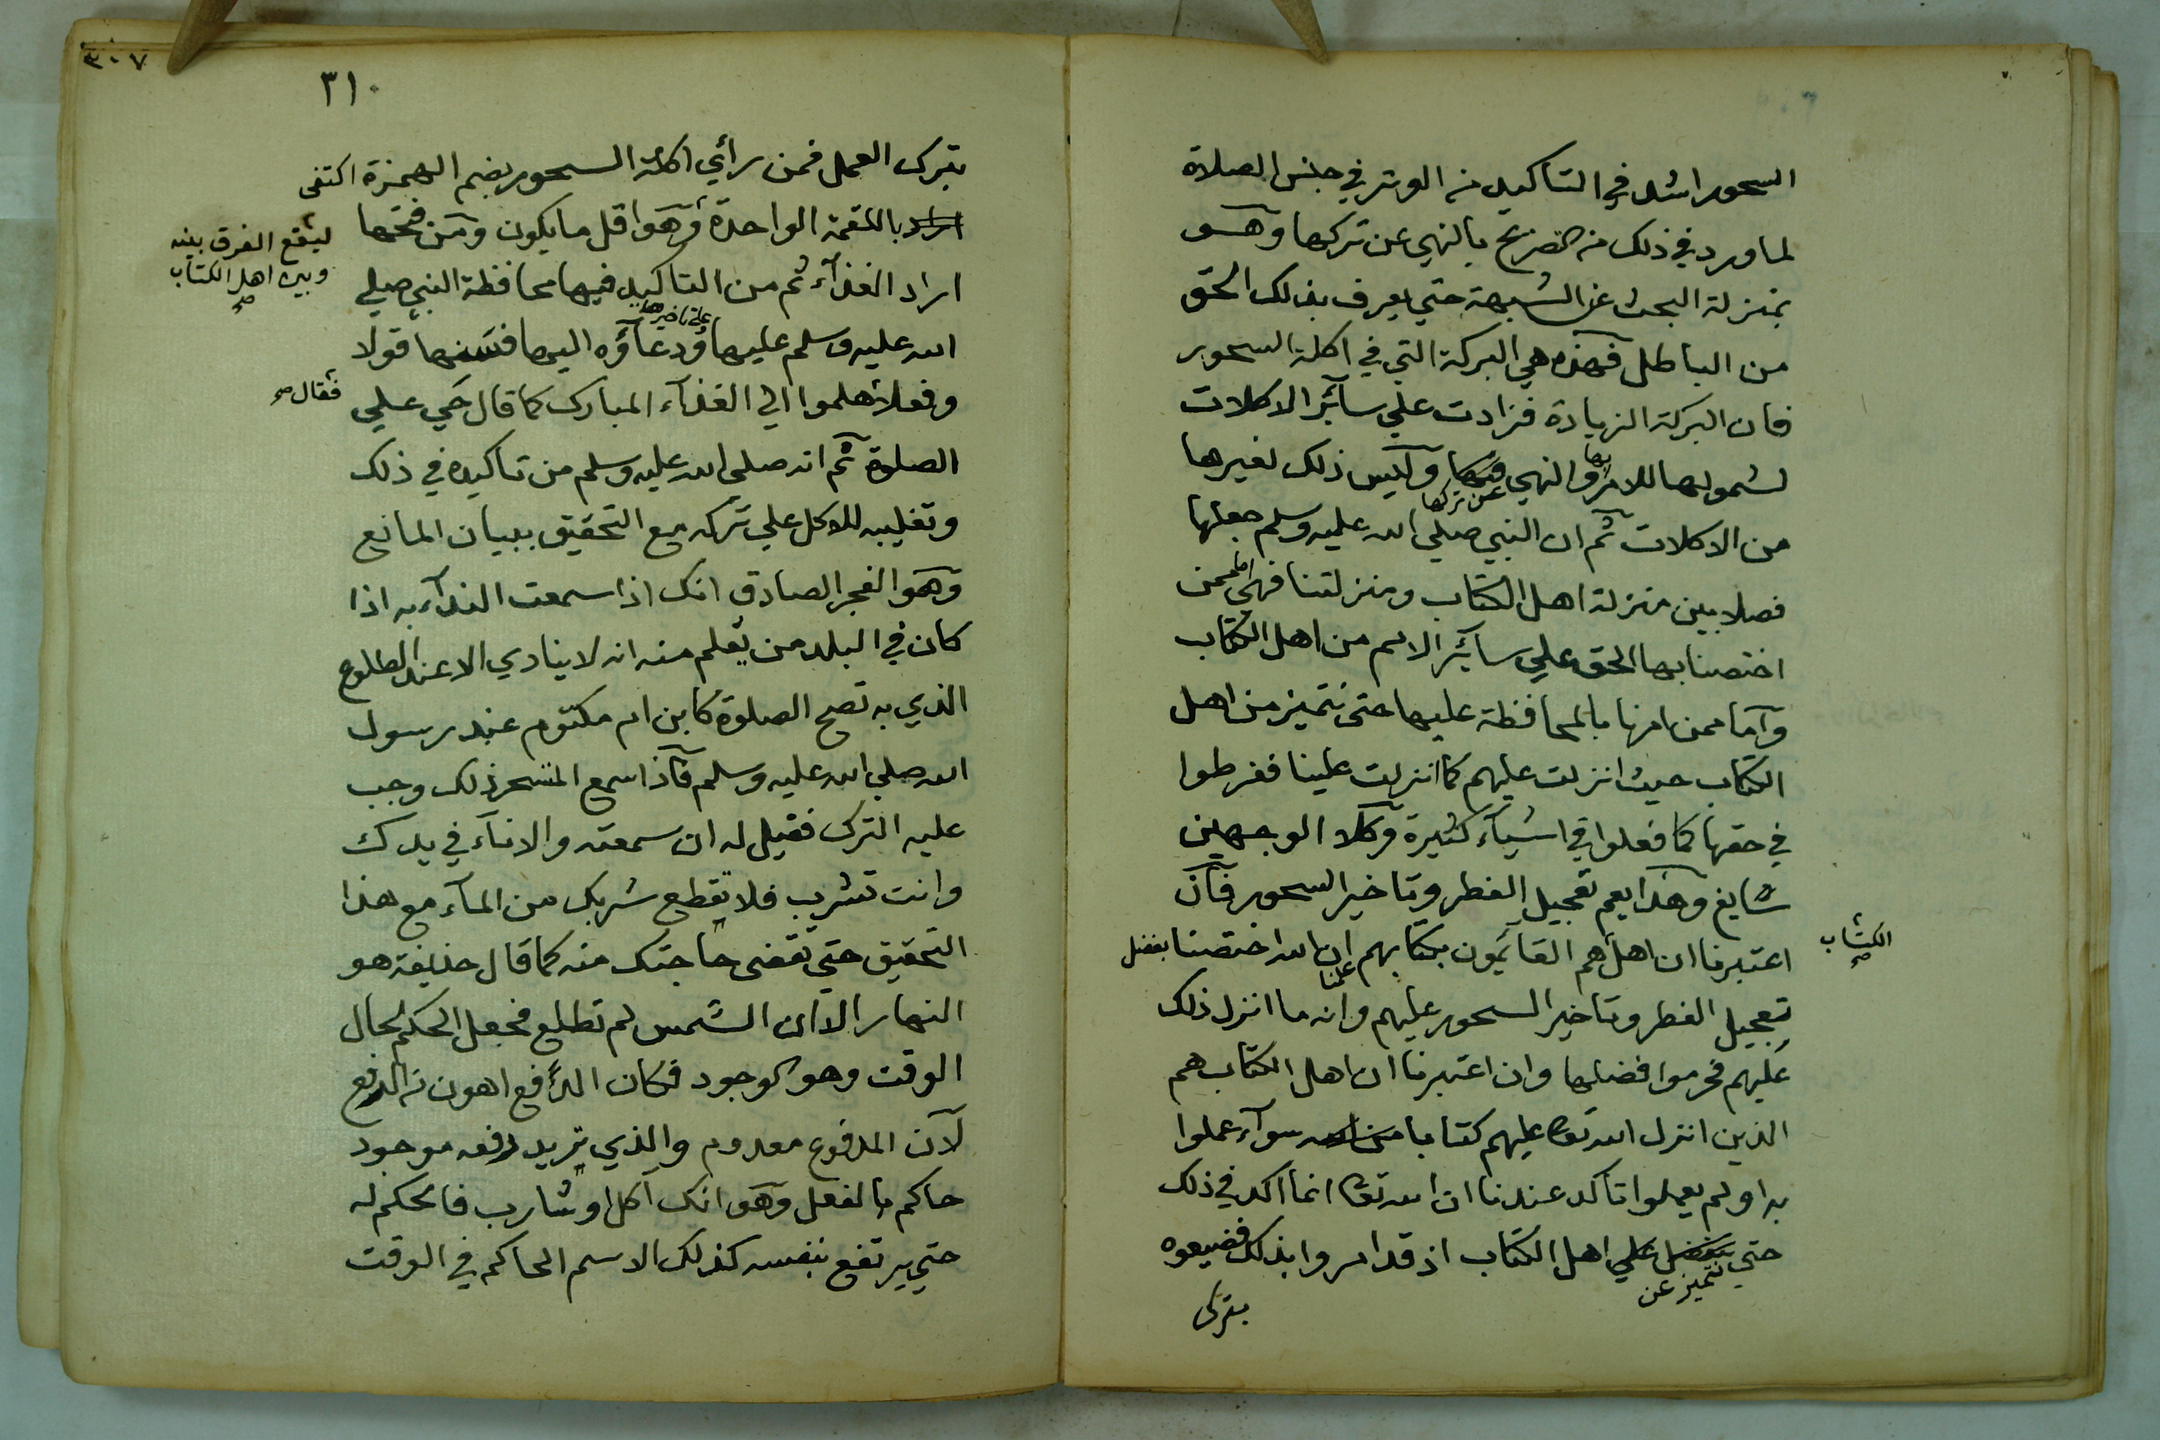 السحور اشد في التاكيد من الوتر في جنس الصلاة
لما ورد في ذلك من التصريح بالنهي عن تركها وهو
بمنزلة البحث عن الشبهة حتي يعرف بذلك الحق
من الباطل فهذه هي البركة التي في اكلة السحور
فان البركة الزيادة فزادت علي سائر الاكلات
لشمولها للامر بها والنهي فيها عن تركها وليس ذلك لغيرها
من الاكلات ثم ان النبي صلي الله عليه وسلم جعلها
فصلا بين منزلة اهل الكتاب ومنزلتنا فهي اما ممن
اختصنا بها الحق علي سائر الامم من اهل الكتاب
واما ممن امرنا بالمحافظة عليها حتي نتميز من اهل
الكتاب حيث انزلت عليهم كما انزلت علينا ففرطوا
في حقها كما فعلوا في اشياء كثيرة وكلا الوجهين
شايغ وهذا يعم تعجيل الفطر وتاخير السحور فان
اعتبرنا ان اهل الكتاب هم القائمون بكتابهم علمنا ان الله اختصنا بفضل
تعجيل الفطر وتاخير السحور عليهم وانه ما انزل ذلك
عليهم فحرموا فضلها وان اعتبرنا ان اهل الكتاب هم
الذين انزل الله تعا عليهم كتابا سواء عملوا
به او لم يعملوا تاكد عندنا ان الله تعا انما اكد في ذلك
حتي نتميز عن اهل الكتاب اذ قد امروا بذلك فضيعوه
بترك
٣٠٧
٣١٠
بترك العمل فمن رأي اكلة السحور بضم الهمزة اكتفى
باللقمة الواحدة وهو اقل ما يكون ومن فتحها
ليقع الفرق بينه
وبين اهل الكتاب
صح
اراد الغذاء ثم من التاكيد فيها محافظة النبي صلي
الله عليه وسلم عليها وعلي تاخيرها ودعاؤه اليها فسنها قولا
وفعلا فقال صح هلموا الي الغذاء المبارك كما قال حي علي
الصلوة ثم انه صلى الله عليه وسلم من تاكيده في ذلك
وتغليبه للاكل علي تركه مع التحقيق ببيان المانع
وهو الفجر الصادق انك اذا سمعت النداء به اذا
كان في البلد من يعلم منه انه لا ينادي الا عند الطلوع
الذي به تصح الصلوة كابن ام مكتوم عند رسول
الله صلي الله عليه وسلم فاذا سمع المتسحر ذلك وجب
عليه الترك فقيل له ان سمعته والاناء في يدك
وانت تشرب فلا تقطع شربك من الماء مع هذا
التحقيق حتي تقضي حاجتك منه كما قال حذيفة هو
النهار الا ان الشمس لم تطلع فجعل الحكم لحال
الوقت وهو الوجود فكان الدافع اهون من الرفع
لان المدفوع معدوم والذي تريد رفعه موجود
حاكم بالفعل وهو انك آكل او شارب فالحكم له
حتي يرتفع بنفسه كذلك الاسم الحاكم في الوقت